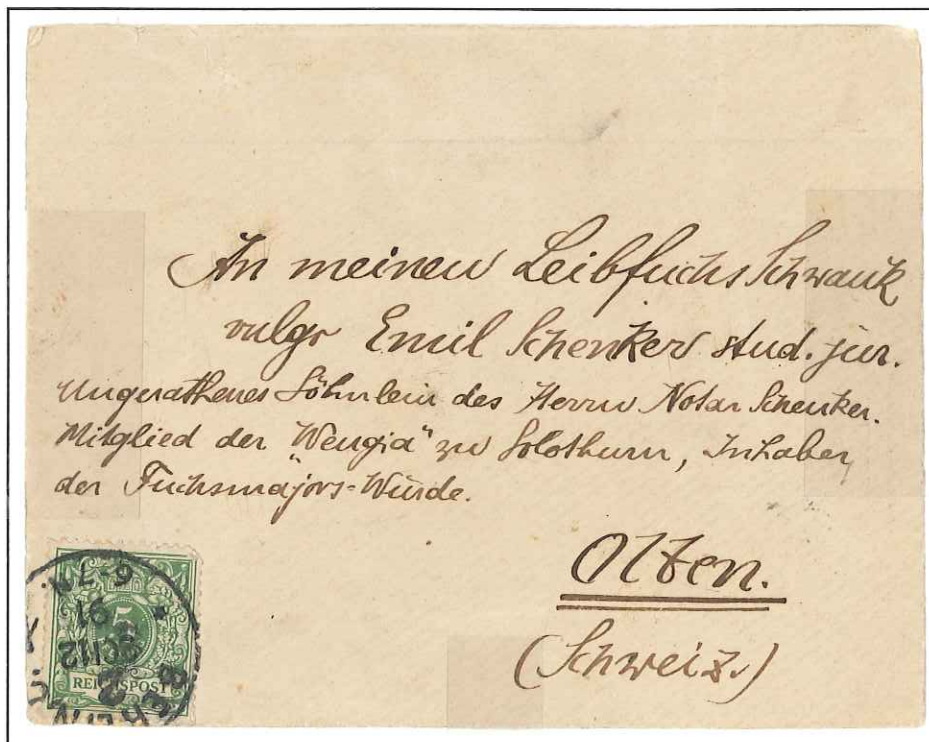 An meinen Leibfuchs Schwank
vulgo Emil Schenker stud. jur.
Ungerathenes Söhnlein des Herrn Notar Schenker.
Mitglied der "Wengia" zu Solothurn, Inhaber
der Fuchsmajors-Würde.
Olten.
(Schweiz.)
5
REICHSPOST
6-7N.
91